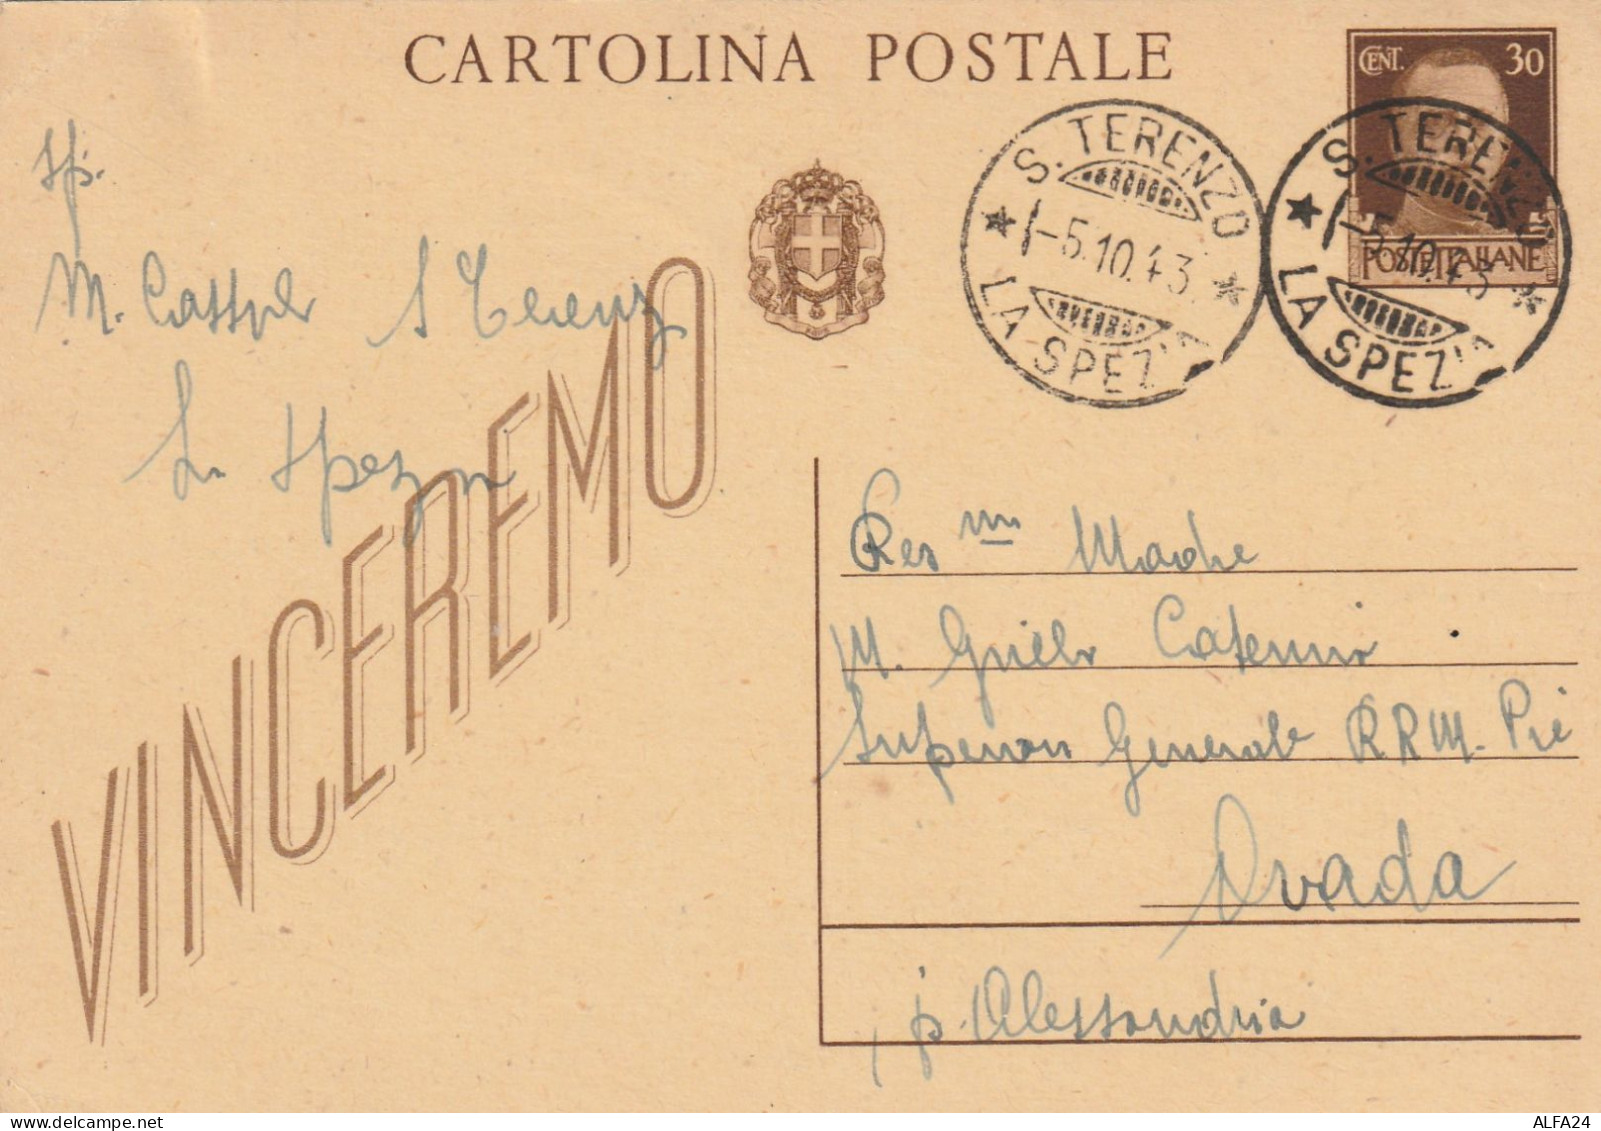 CARTOLINA POSTALE
CENT. 30
POSTE ITALIANE
S. TERENZO
-5.10.43
LA SPEZIA
S. TERENZO
-5.10.43
LA SPEZIA
M. S Terenzo
La Spezia
VINCEREMO
Rev ma Madre
M. Caterina
Superiora Generale RRM. Pie
Ovada
p. Alessandria
ALFA24